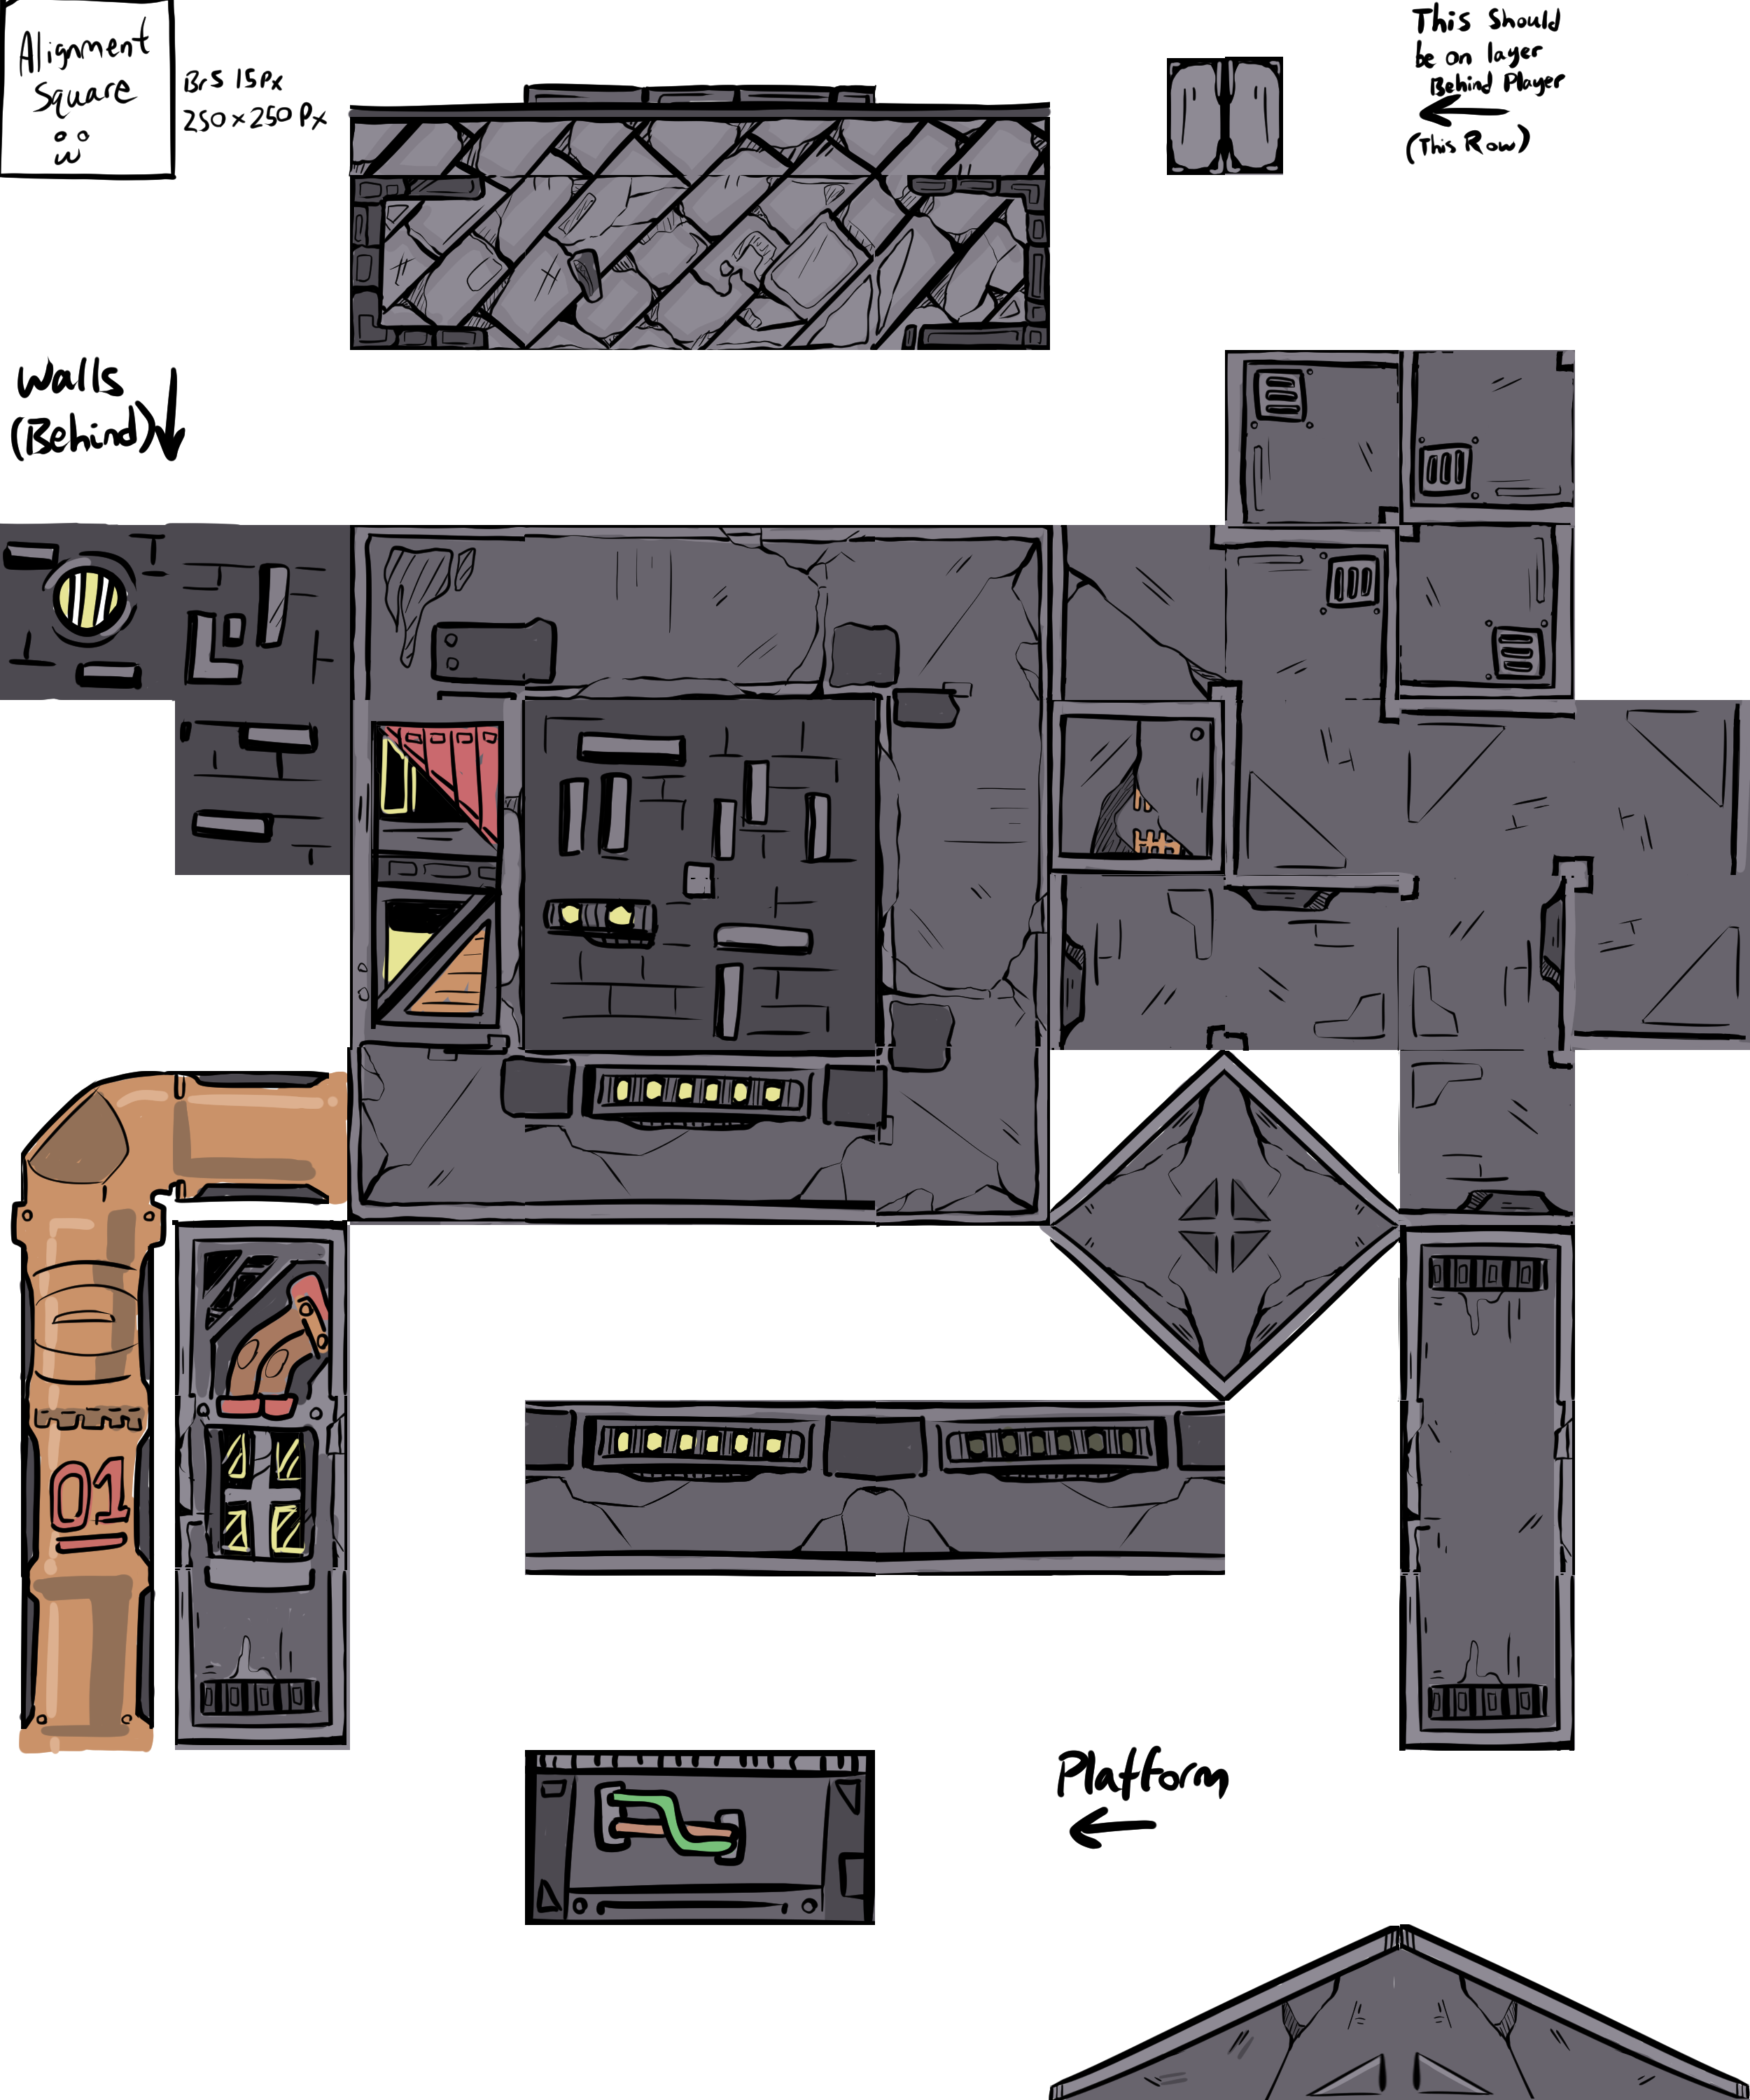 Alignment
Square
Brs 15Px
250x250 Px
This Should
be on layer
Behind Player
(This Row)
Walls
(Behind)
01
Platform